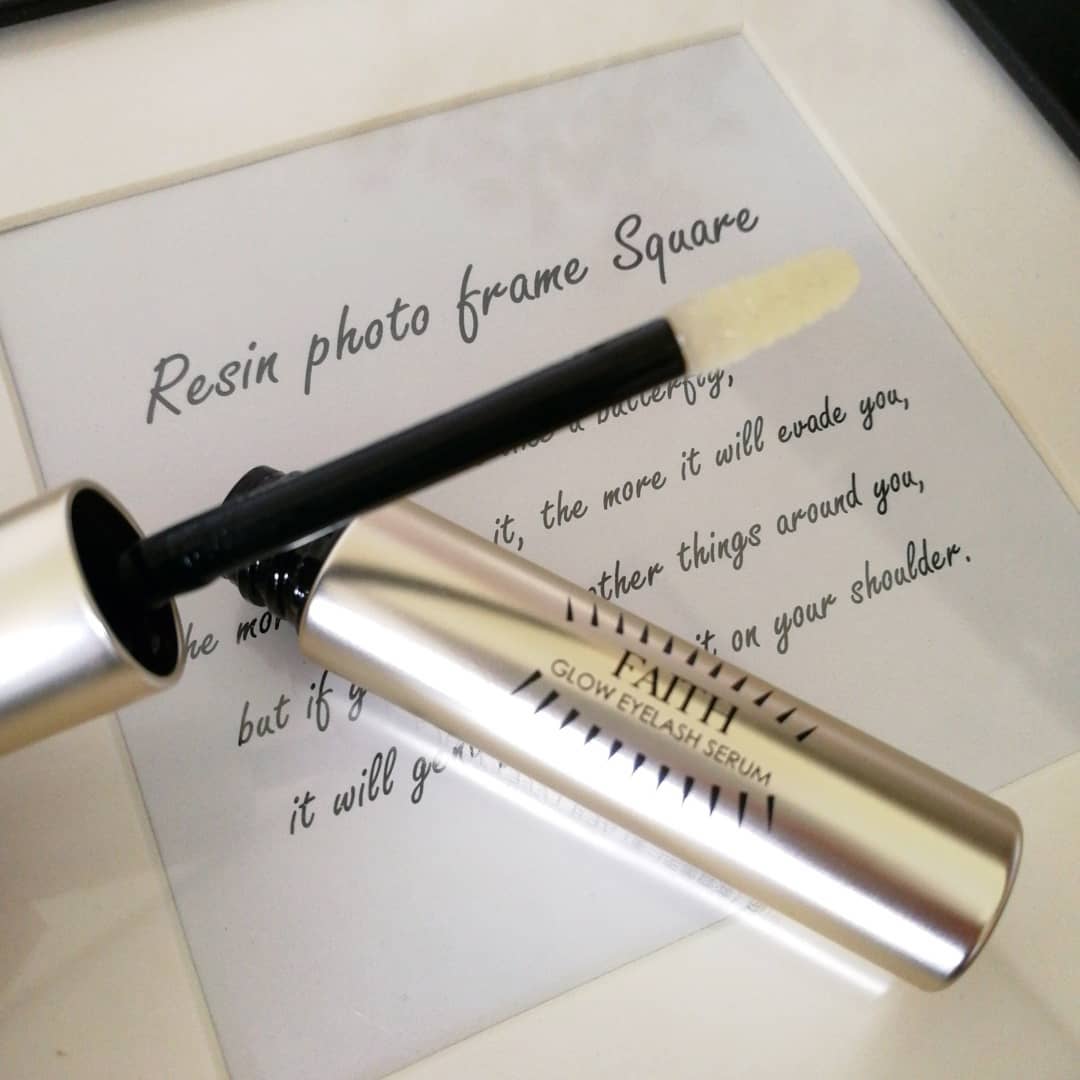 Resin photo frame Square
a butterfly,
it, the more it will evade you,
other things around you,
he mor
but if y
it, on your shoulder.
it will ge
FAITH
GLOW EYELASH SERUM